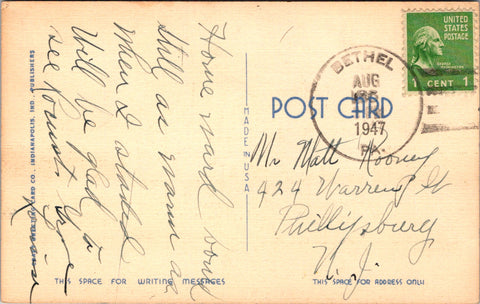 Home ward bound
Still as warm as
when I started
Will be glad to
see
MADE IN U.S.A.
THIS SPACE FOR WRITING MESSAGES
UNITED
STATES
POSTAGE
1 CENT 1
BETHEL
AUG
1947
PA.
POST CARD
Mr Matt Rooney
424 Warren St
Phillipsburg
N. J.
THIS SPACE FOR ADDRESS ONLY
CARD CO., INDIANAPOLIS, IND., PUBLISHERS